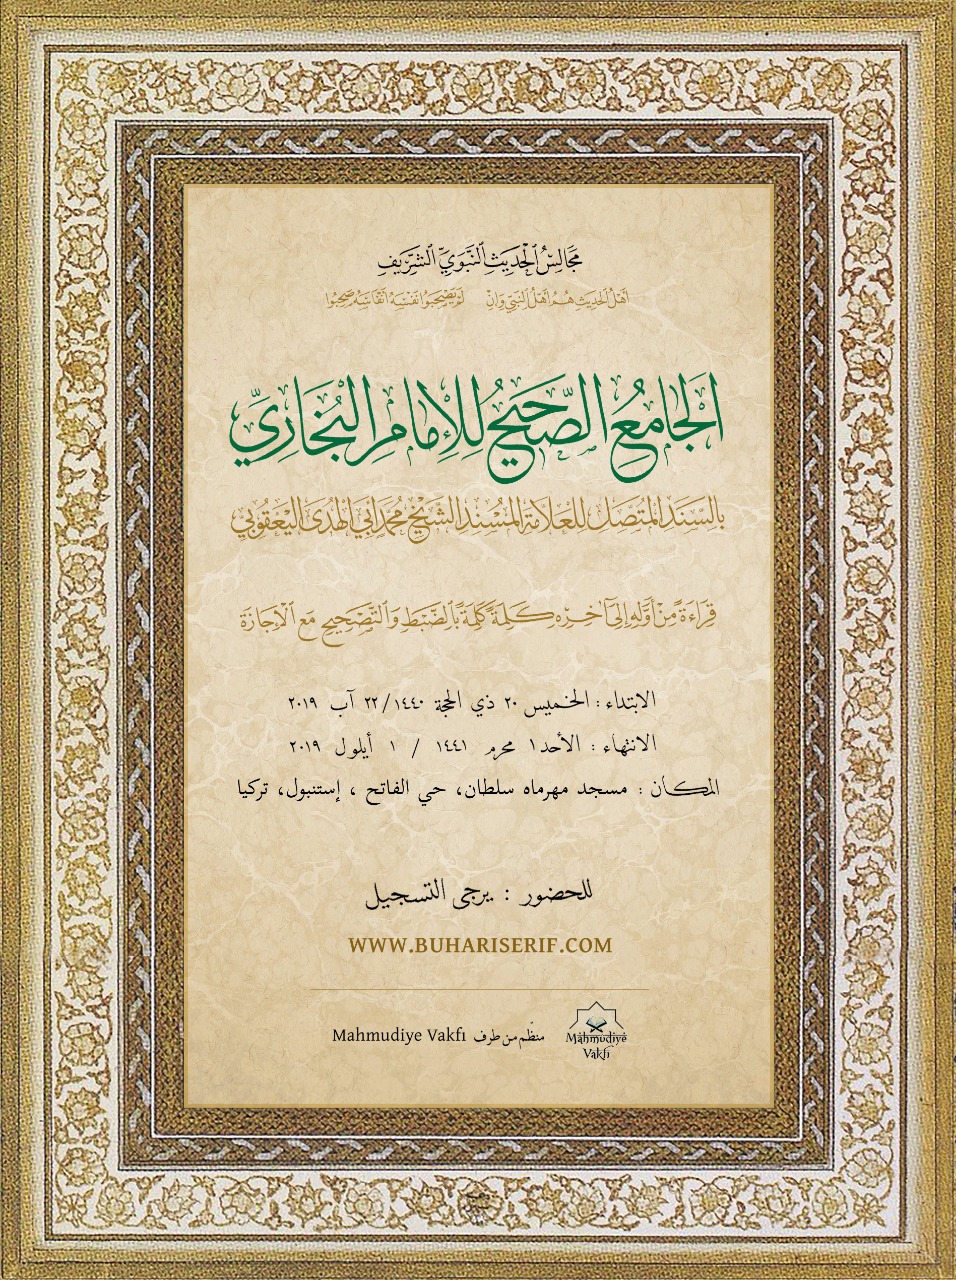 مَجَالِسُ الْحَدِيثِ النَّبَوِيِّ الشَّرِيفِ
أَهْلُ الْحَدِيثِ هُمُ أَهْلُ النَّبِيِّ وَإِنْ لَمْ يَصْحَبُوا نَفْسَهُ أَنْفَاسَهُ صَحِبُوا
الْجَامِعُ الصَّحِيحُ لِلْإِمَامِ الْبُخَارِيِّ
بِالسَّنَدِ الْمُتَّصِلِ لِلْعَلَّامَةِ الْمُسْنِدِ الشَّيْخِ مُحَمَّدْ أَبِي الْهُدَى الْيَعْقُوبِيِّ
قِرَاءَةً مِّنْ أَوَّلِهِ إِلَىٰ آخِرِهِ كَلِمَةً كَلِمَةً بِالضَّبْطِ وَالتَّصْحِيحِ مَعَ الْإِجَازَةِ
الابتداء : الخميس ٢٠ ذي الحجة ١٤٤٠/ ٢٢ آب ٢٠١٩
الانتهاء : الأحد ١ محرم ١٤٤١ / ١ أيلول ٢٠١٩
المكان : مسجد مهرماه سلطان، حي الفاتح ، إستنبول، تركيا
للحضور : يرجى التسجيل
WWW.BUHARISERIF.COM
منظّم من طرف Mahmudiye Vakfı
Mahmudiye
Vakfı